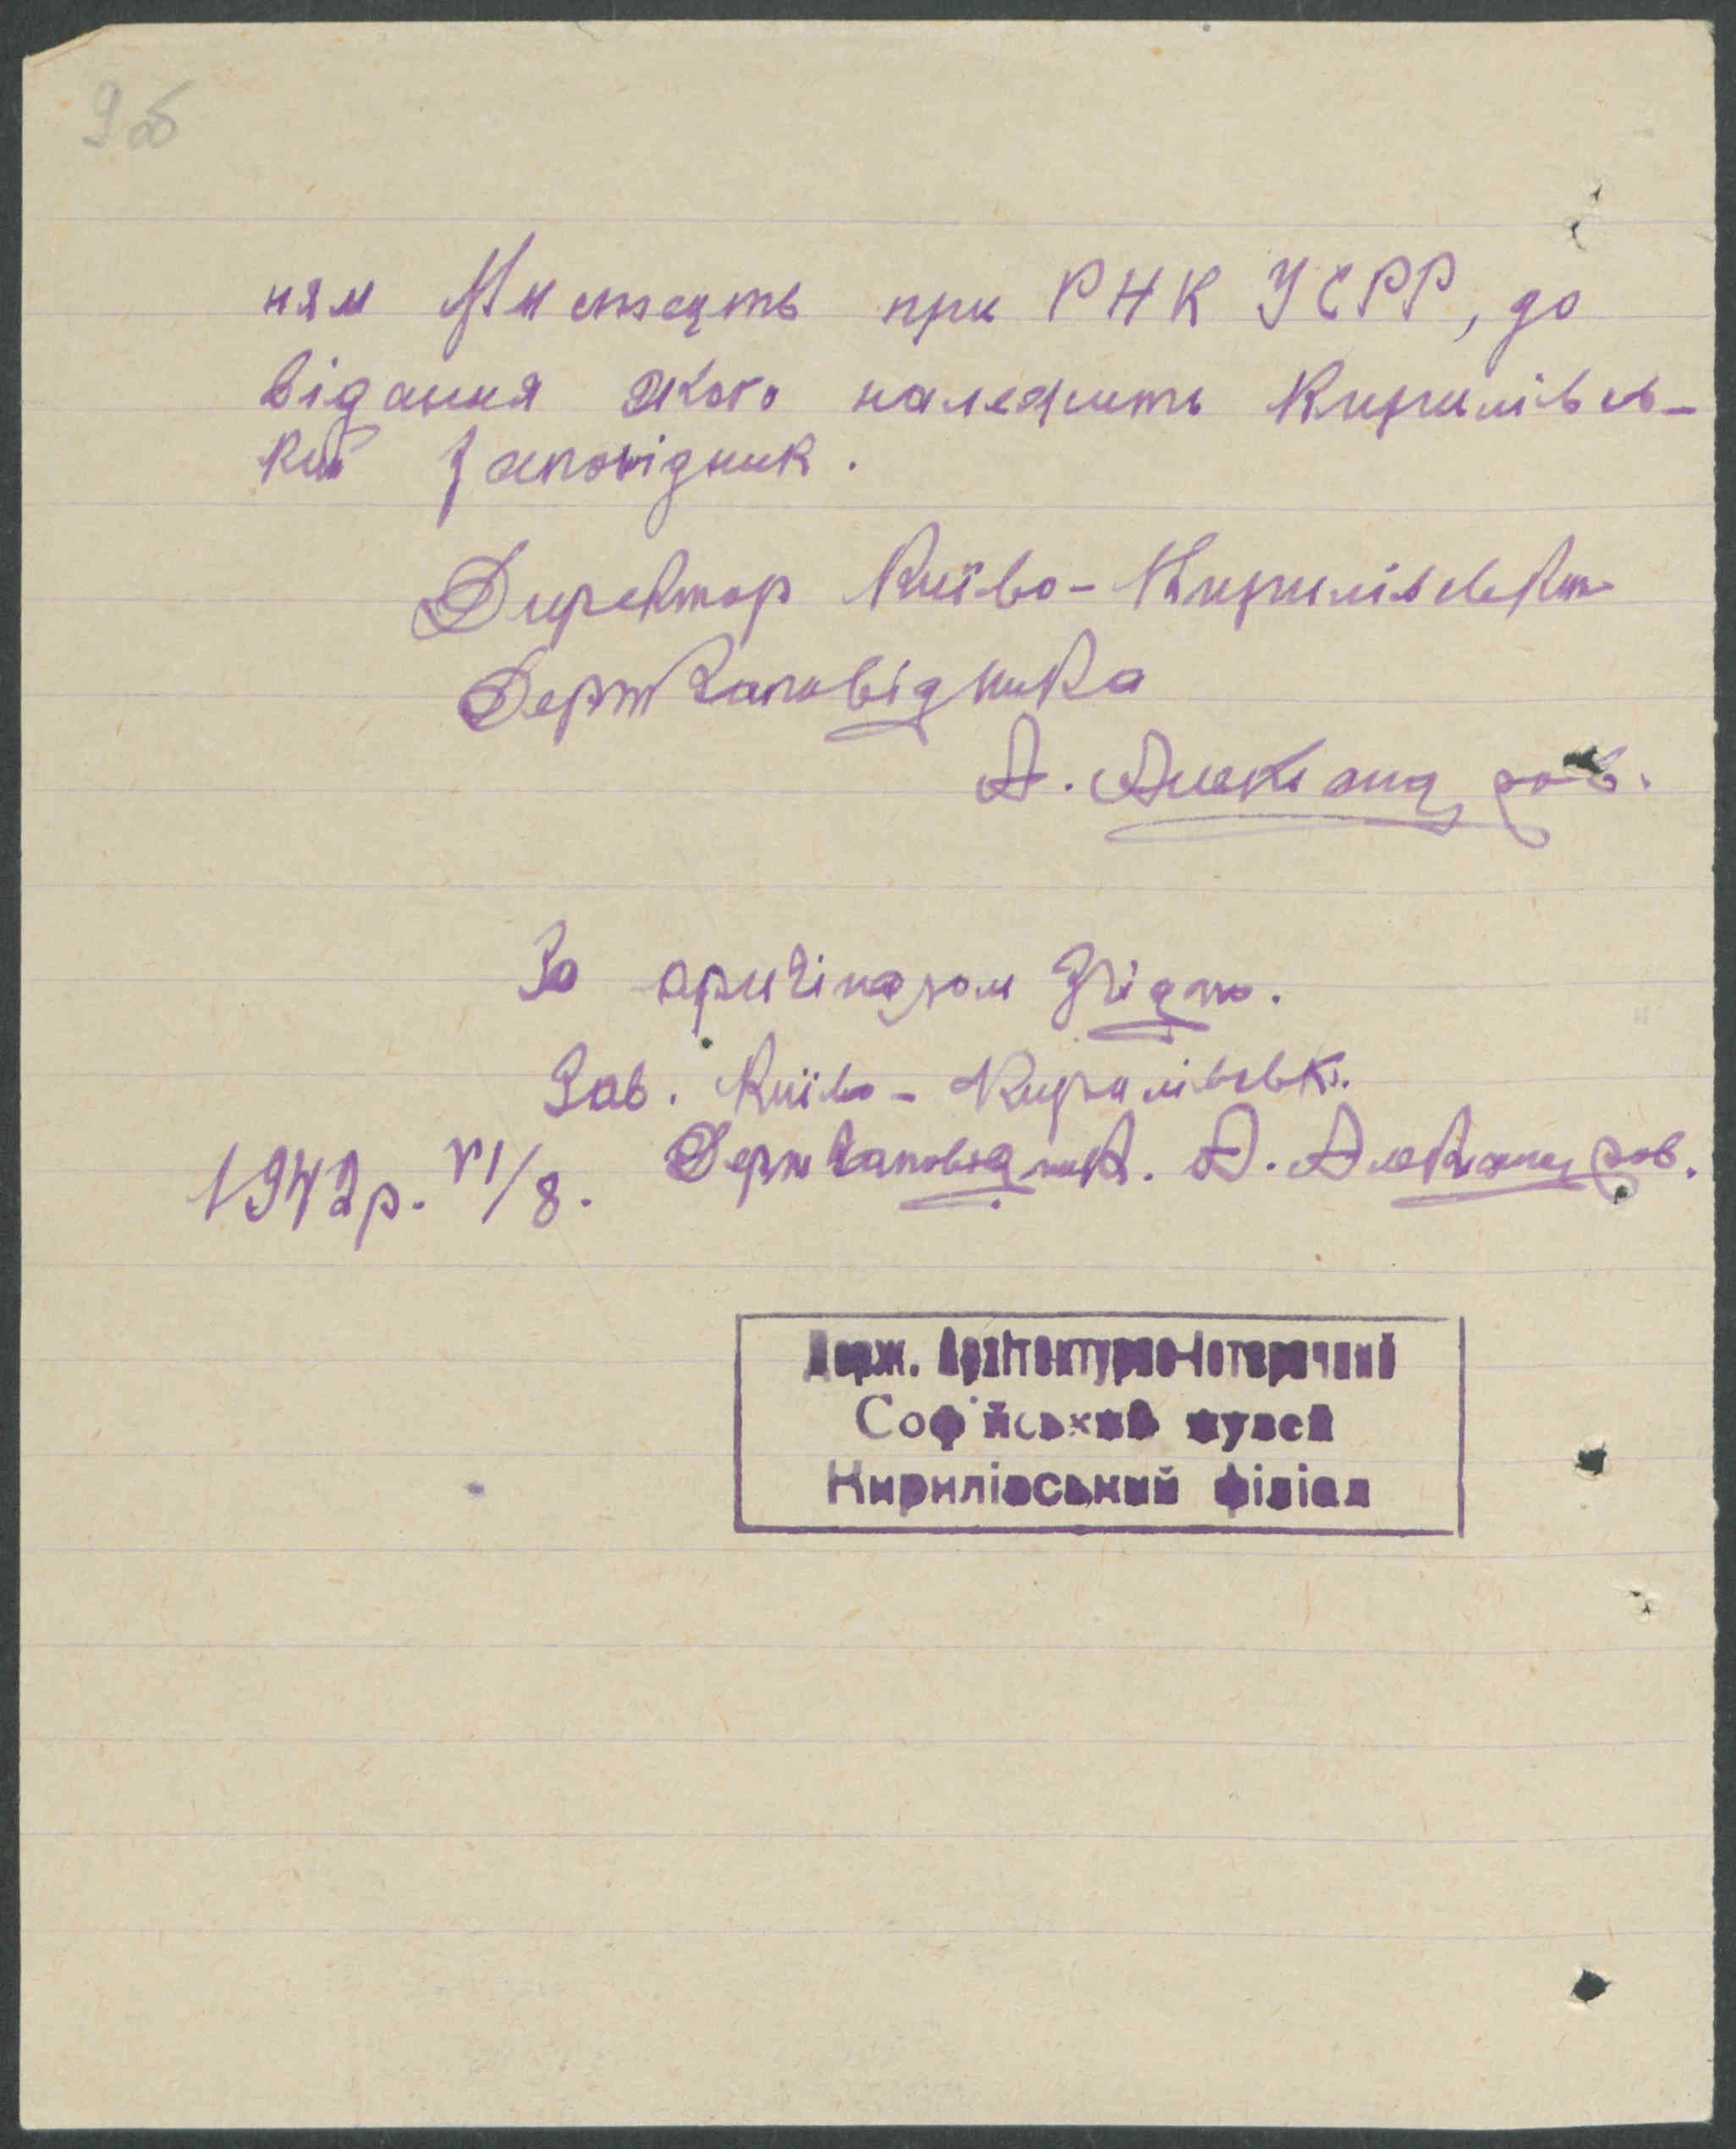 9об
ням Мистецтв при РНК УСРР, до
відання якого належить Кирилівсь-
кий Заповідник.
Директор Київо-Кирилівськ.
Держзаповідника
А. Александров.
За оригіналом згідно.
Зав. Київо-Кирилівськ.
1942 р. VI/8. Держзаповідник. А. Александров.
Держ. Архітектурно-Історичний
Софійський музей
Кирилівський філіал